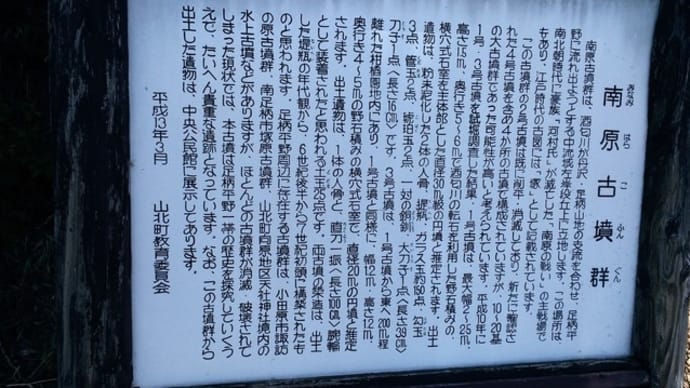 南原古墳群
みなみ はら こ ふん ぐん
南原古墳群は、酒匂川が丹沢・足柄山地の支流を合わせ、足柄平
野に流れ出ようとする中流域左岸段丘上に立地します。この場所は、
南北朝時代に豪族「河村氏」が滅亡した「南原の戦い」の主戦場で
もあり、江戸時代の古図には「塚」として記載されています。
この古墳群の2号古墳は既に削平・消滅しており、新たに確認さ
れた4号古墳を含め4か所の古墳で構成されていますが、10〜20基
の大古墳群であった可能性が高いと考えられています。平成10年に
1号・3号古墳を試掘調査した結果、1号古墳は、最大幅2〜2.5m、
高さ1.5m、奥行き5〜6mで酒匂川の転石を利用した野石積みの、
横穴式石室を主体部とした直径30m級の円墳と推定されます。出土
遺物は、粉末劣化した9体の人骨、堤瓶、ガラス玉約150点、勾玉
3点、管玉2点、琥珀玉2点、一対の銅釧、大刀子1点〈長さ39㎝〉
刀子1点〈長さ16㎝〉です。3号古墳は、1号古墳から東へ200m程
離れた柑橘園地内にあり、1号古墳と同様に、幅1.2m、高さ1.2m、
奥行き4〜5mの野石積みの横穴式石室で、直径20mの円墳と推定
されます。出土遺物は、1体の人骨と、直刀一振〈長さ100㎝〉腕輪
として装着されたと思われる土玉29点です。両古墳の築造は、出土
した堤瓶の年代観から、6世紀後半から7世紀初頭に構築されたも
のと思われます。足柄平野周辺に存在する古墳群は、小田原市諏訪
の原古墳群、南足柄市塚原古墳群、山北町向原地区天社神社境内の
水上古墳などがありますが、ほとんどの古墳群が消滅・破壊されて
しまった現状では、本古墳は足柄平野一帯の歴史を探究していくう
えで、たいへん貴重な遺跡となっています。なお、この古墳群から
出土した遺物は、中央公民館に展示してあります。
平成13年3月
山北町教育委員会